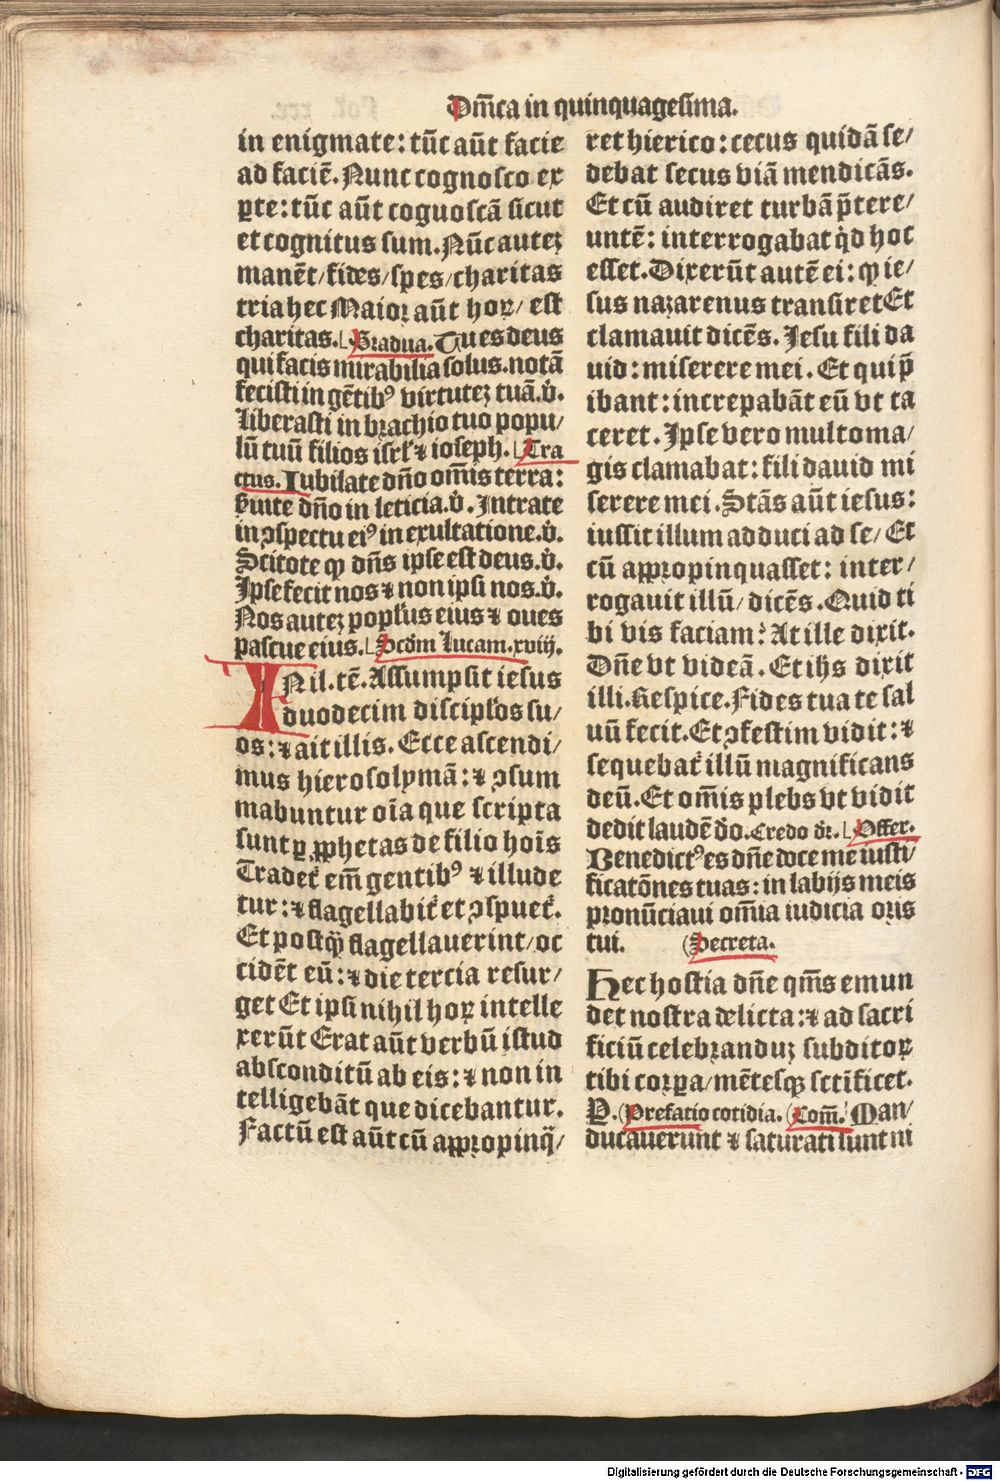 Dm̄ca in quinquagesima.
in enigmate: tūc aūt facie
ad faciē. Nunc cognosco ex
ꝑte: tūc aūt coguoscā sicut
et cognitus sum. Nūc autez
manēt/ fides/ spes/ charitas
tria hec Maioꝛ aūt hoꝝ/ est
charitas. Gradua. Tu es deus
qui facis mirabilia solus. notā
fecisti in gētibꝰ virtutez tuā. v̓.
Liberasti in bꝛachio tuo popu/
lū tuū filios isrl̓ ⁊ ioseph. Tra
ctus. Iubilate dn̄o om̄is terra:
ẜuite dn̄o in leticia. v̓. Intrate
in ↄspectu eiꝰ in exultatione. v̓.
Scitote ꝙ dn̄s ipse est deus. v̓.
Ipse fecit nos ⁊ non ipsi nos. v̓.
Nos autez popl̓us eius ⁊ oues
pascue eius. Scd̓m Lucam. xviij.
IN il. tē. Assumpsit iesus
duodecim discipl̓os su/
os: ⁊ ait illis. Ecce ascendi/
mus hierosolymā: ⁊ ↄsum
mabuntur oīa que scripta
sunt ꝑ ꝓphetas de filio hoīs
Tradet̓ em̄ gentibꝰ ⁊ illude
tur: ⁊ flagellabit̓ et ↄspuet̓.
Et postq̄ flagellauerint/ oc
cidēt eū: ⁊ die tercia resur/
get Et ipsi nihil hoꝝ intelle
xerūt Erat aūt verbū istud
absconditū ab eis: ⁊ non in
telligebāt que dicebantur.
Factū est aūt cū aꝓpinq̄/
ret hierico: cecus quidā se/
debat secus viā mendicās.
Et cū audiret turbā p̄tere/
untē: interrogabat qͥd hoc
esset. Dixerūt autē ei: ꝙ ie/
sus nazarenus transiret Et
clamauit dicēs. Jesu fili da
uid: miserere mei. Et qui p̄
ibant: increpabāt eū vt ta
ceret. Ipse vero multo ma/
gis clamabat: fili dauid mi
serere mei. Stās aūt iesus:
iussit illum adduci ad se/ Et
cū appꝛopinquasset: inter/
rogauit illū/ dicēs. Quid ti
bi vis faciam? At ille dixit.
Dn̄e vt videā. Et ihs dixit
illi. Respice. Fides tua te sal
uū fecit. Et ↄfestim vidit: ⁊
sequebat̓ illū magnificans
deū. Et om̄is plebs vt vidit
dedit laudē d̓o. Credo dr̓. Offer.
Benedictꝰ es dn̄e doce me iusti/
ficatōnes tuas: in labijs meis
pronūciaui om̄ia iudicia oꝛis
tui. Secreta.
Hec hostia dn̄e qm̄s emun
det nostra delicta: ⁊ ad sacri
ficiū celebꝛanduz subditoꝝ
tibi coꝛꝑa/ mētesqꝫ sctīficet.
P. Prefatio cotidia. Com̄. Man/
ducauerunt ⁊ saturati sunt ni
Digitalisierung gefördert durch die Deutsche Forschungsgemeinschaft - DFG